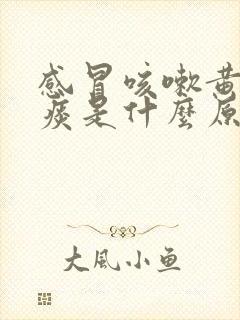 感冒咳嗽黄
痰是什麼原
大風小鱼